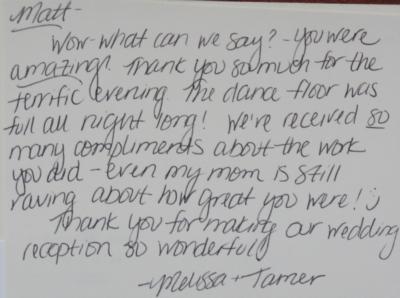 Matt-
Wow-what can we say?-you were
amazing! Thank you so much for the
terrific evening. The dance floor was
full all night long! We've received so
many compliments about the work
you did - even my mom is still
raving about how great you were! :)
Thank you for making our wedding
reception so wonderful!
-Melissa + Tamer